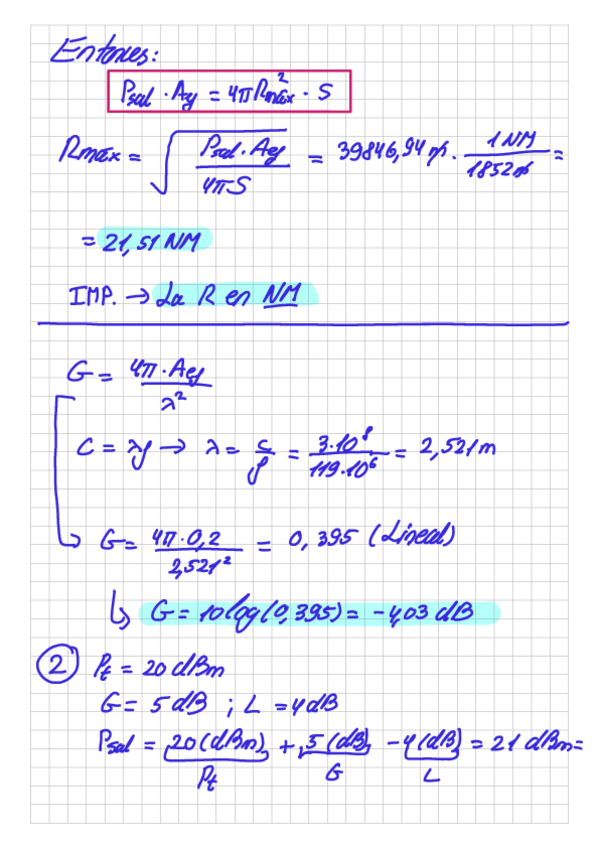 Entonces:
Psal · Aef = 4πRmáx² · S
Rmáx = √(Psal · Aef / 4πS) = 39846,94 m · 1 NM / 1852 m =
= 21,51 NM
IMP. → La R en NM
G = 4π · Aef / λ²
C = λf → λ = c / f = 3·10⁸ / 119·10⁶ = 2,521 m
G = 4π · 0,2 / 2,521² = 0,395 (Lineal)
G = 10log(0,395) = -4,03 dB
2 Pt = 20 dBm
G = 5 dB ; L = 4 dB
Psal = 20 (dBm) + 5 (dB) - 4 (dB) = 21 dBm =
Pt G L